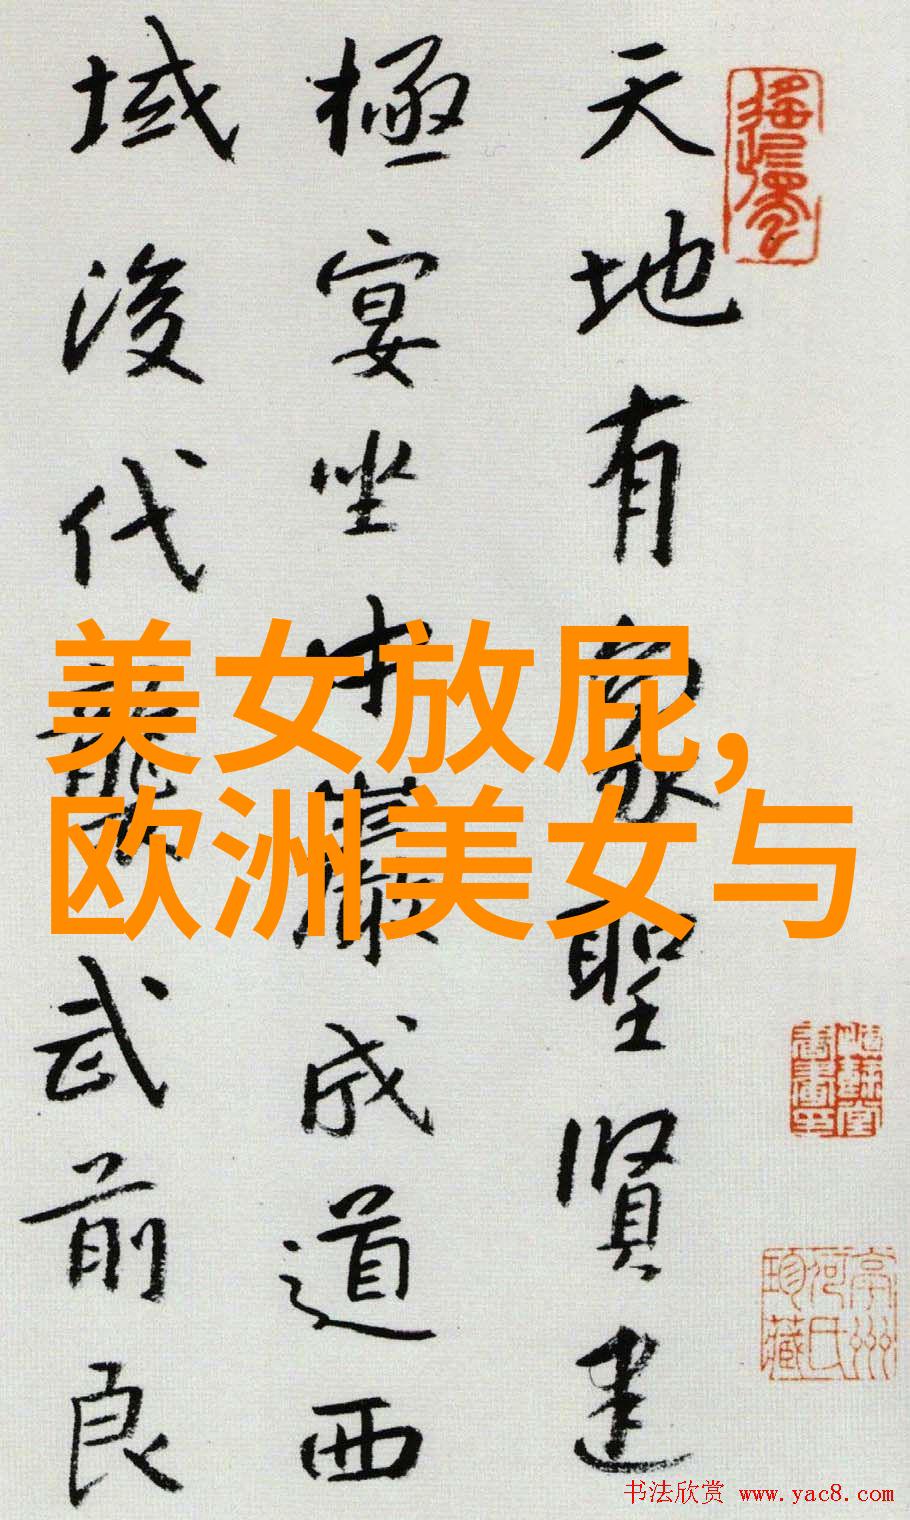 天地有象聖賢建
極宴坐中巖成道西
域後代襲武前良
美女放屁,
欧洲美女与
书法欣赏 www.yac8.com